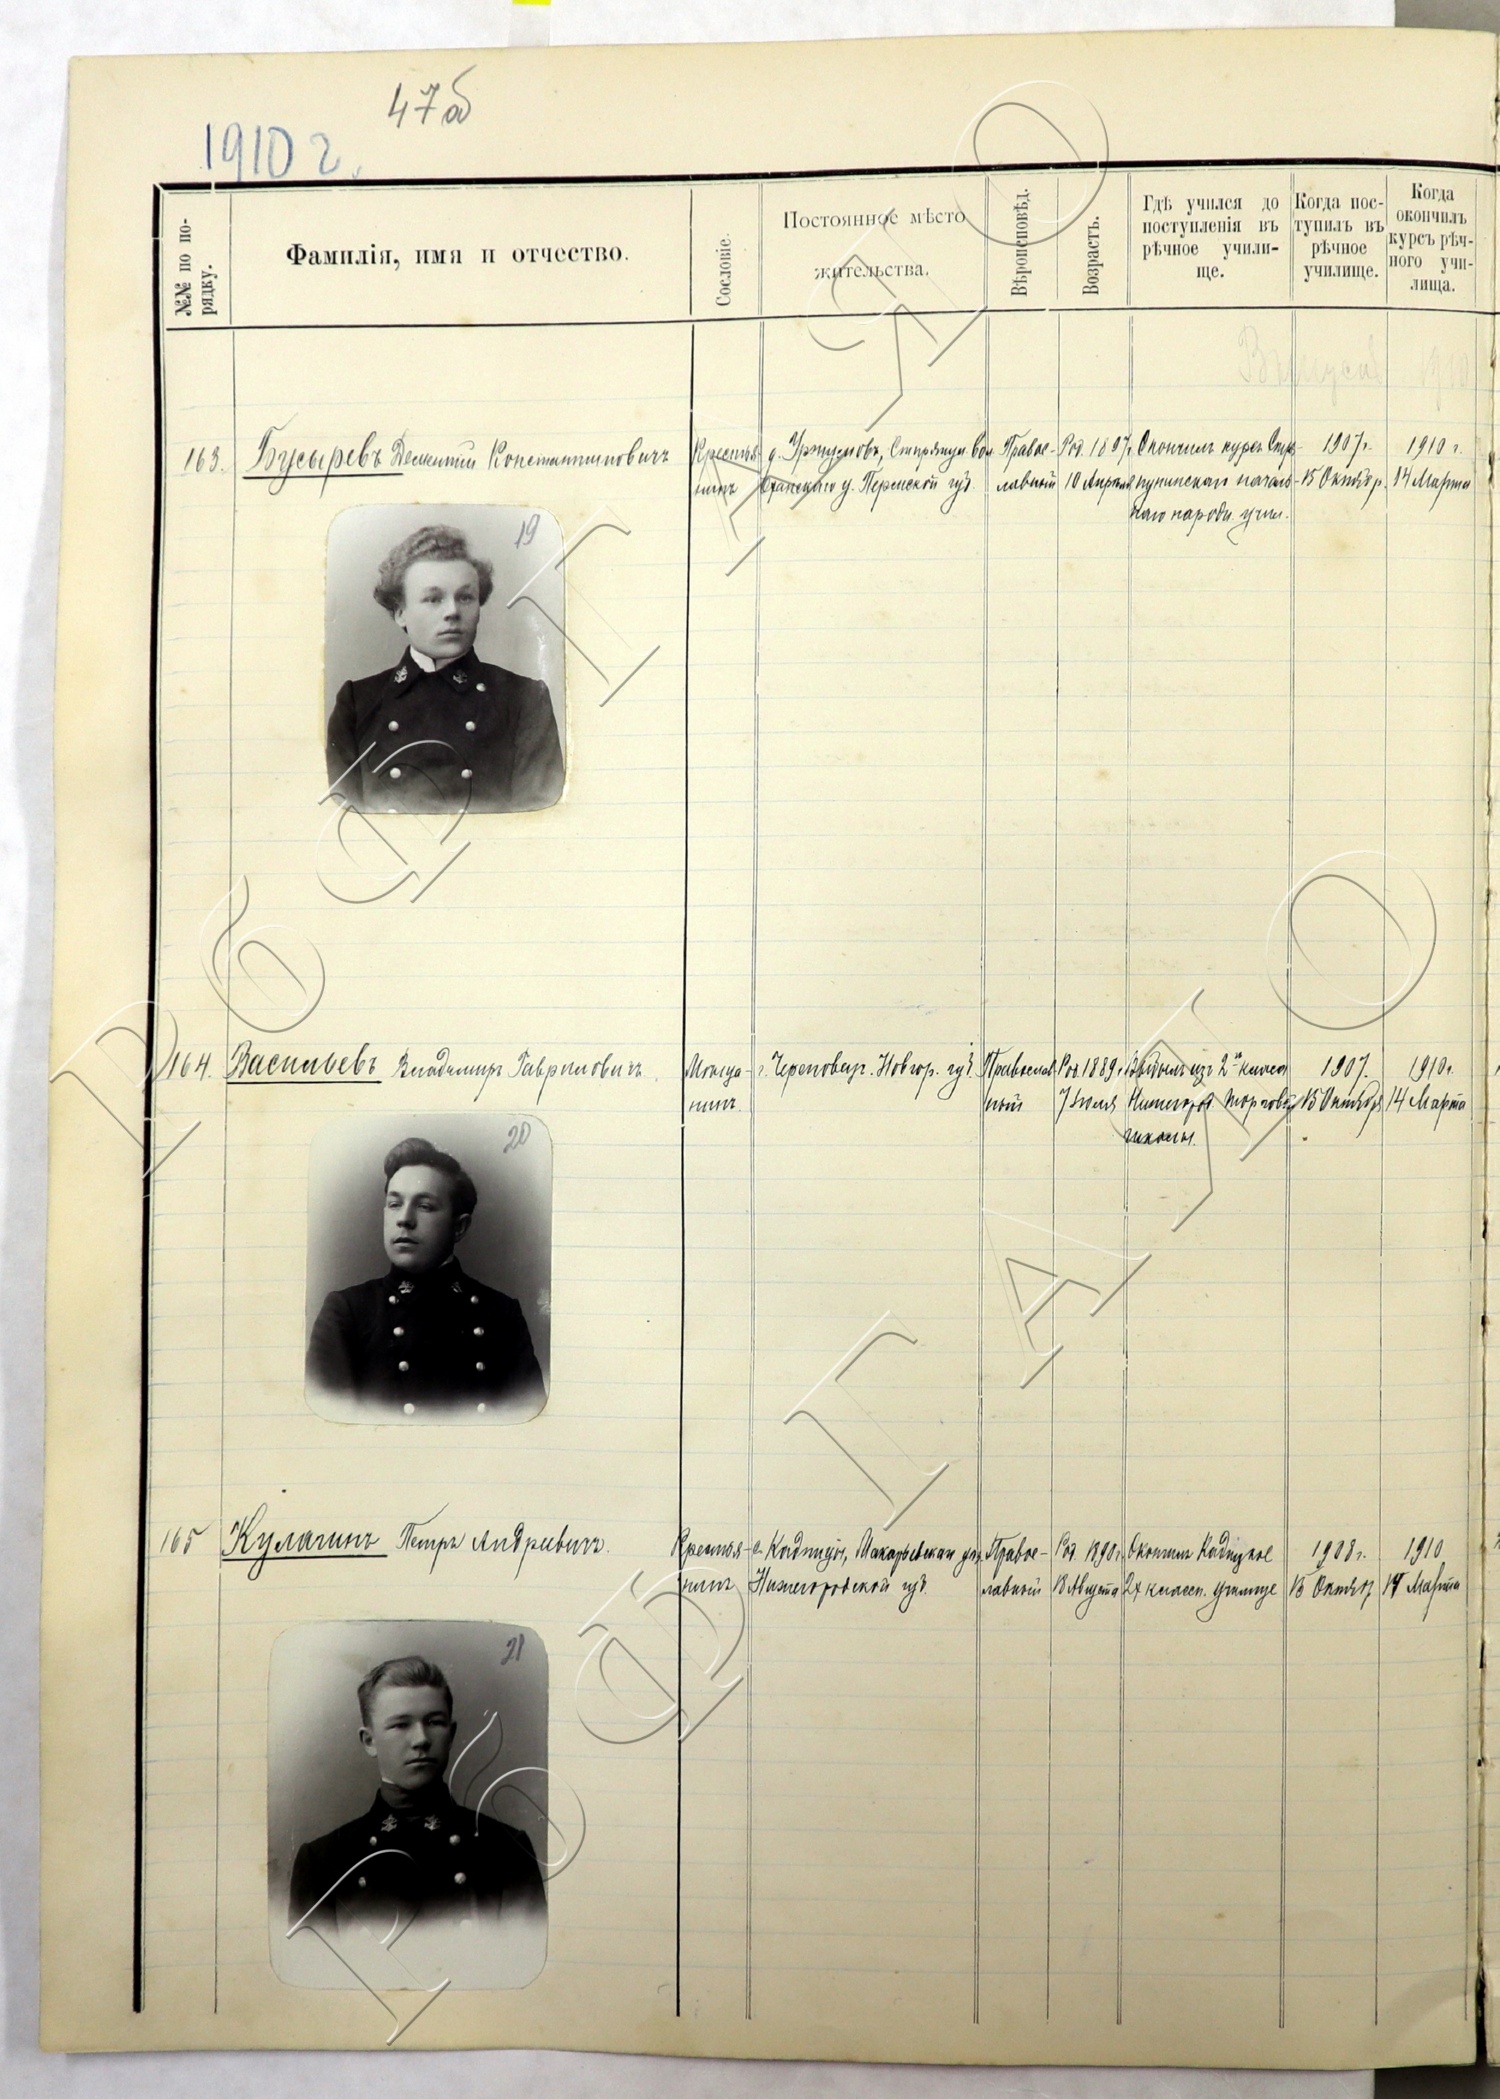 47б
1910 г.
№№ по по-
рядку.
Фамилія, имя и отчество.
Сословіе.
Постоянное мѣсто
жительства.
Вѣроисповѣд.
Возрастъ.
Гдѣ учился до
поступленія въ
рѣчное учили-
ще.
Когда пос-
тупилъ въ
рѣчное
училище.
Когда
окончилъ
курсъ рѣч-
ного учи-
лища.
Выпускъ 1910
163. Бусыревъ Дементий Константиновичъ
Крестья-
нинъ
Пермской губ.
Правос-
лавный
Род.
10 Апреля
Окончилъ курсъ
народн. учил.
1907 г.
15 Октябр.
1910 г.
14 Марта
19
164. Васильевъ Владимиръ Гавриловичъ.
Мѣща-
нинъ.
г. Череповец. Новгор. губ.
Православ
ный
Род. 1889 г.
7 Июля
Выбылъ изъ 2го класса
Нижегород. торговой
школы.
1907.
15 Октября
1910 г.
14 Марта
20
165 Кулагинъ Петръ Андреевичъ.
Крестья-
нинъ
с. Кадницы, Макарьевскаго уѣз.
Нижегородской губ.
Правос-
лавный
Род. 1890 г.
18 Августа
Окончилъ Кадницкое
2х классн. училище
1908 г.
15 Октябр
1910
14 Марта
21
РбФ ГАЯО
РбФ ГАЯО